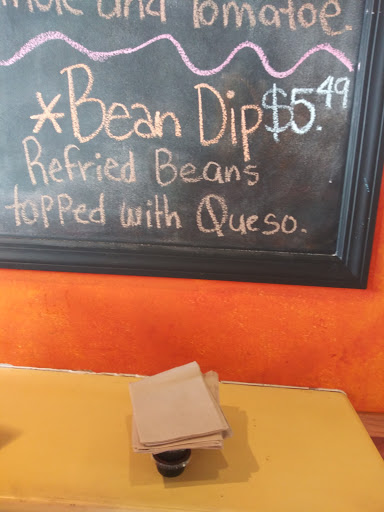 and Tomatoe
*Bean Dip $5.49
Refried Beans
topped with Queso.